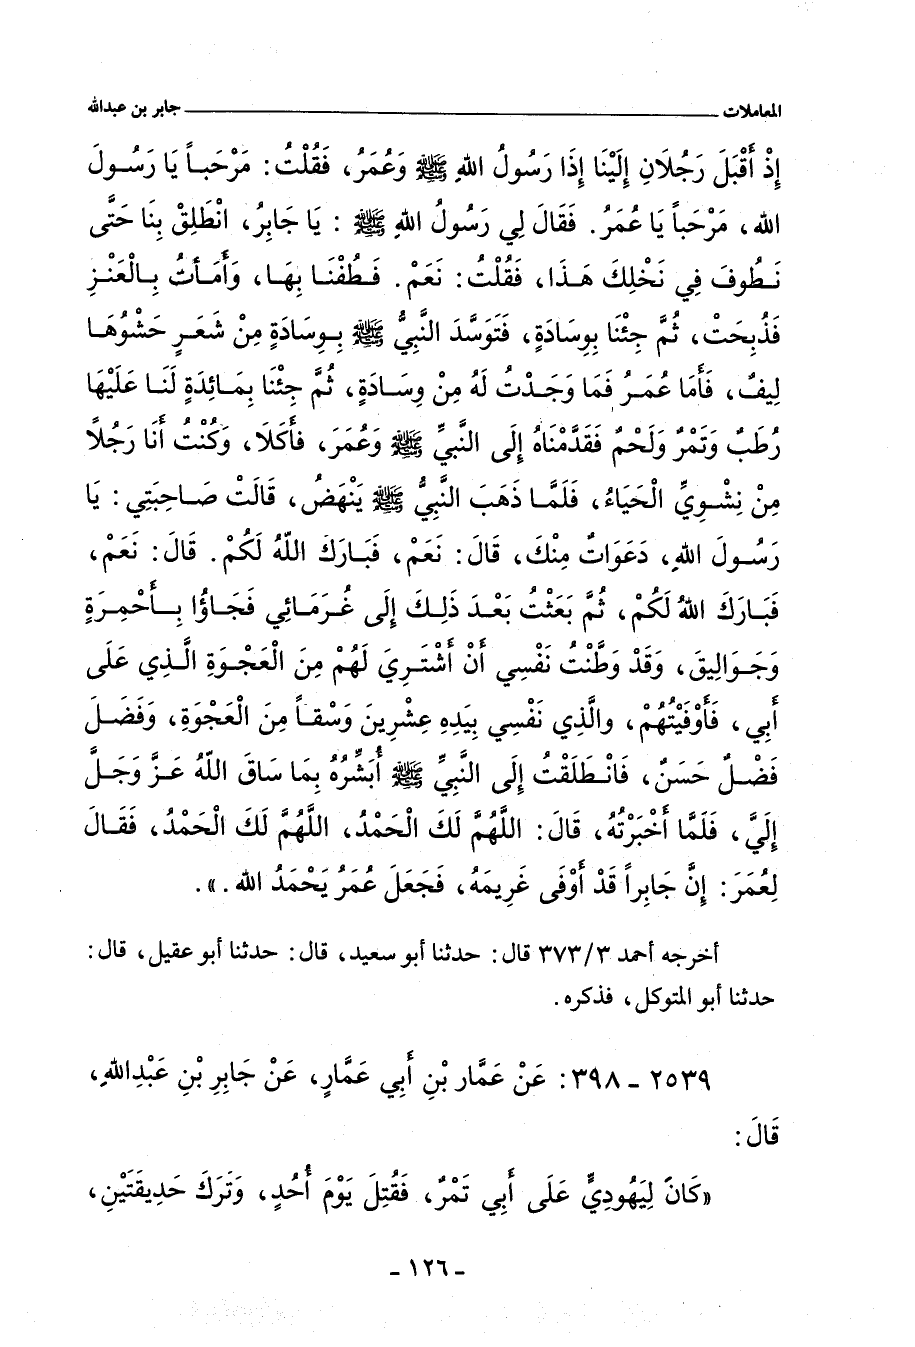 المعاملات ـــــــــــــــــــــــــــــــــــــــــــــــــــــــ جابر بن عبدالله
إِذْ أَقْبَلَ رَجُلَانِ إِلَيْنَا إِذَا رَسُولُ اللهِ ﷺ وَعُمَرُ، فَقُلْتُ: مَرْحَباً يَا رَسُولَ
الله، مَرْحَباً يَا عُمَرُ. فَقَالَ لِي رَسُولُ اللهِ ﷺ : يَا جَابِرُ، انْطَلِقْ بِنَا حَتَّى
نَطُوفَ فِي نَخْلِكَ هَذَا، فَقُلْتُ: نَعَمْ. فَطُفْنَا بِهَا، وَأَمَأتُ بِالْعَنْزِ
فَذُبِحَتْ، ثُمَّ جِئْنَا بِوِسَادَةٍ، فَتَوَسَّدَ النَّبِيُّ ﷺ بِوِسَادَةٍ مِنْ شَعَرٍ حَشْوُهَا
لِيفٌ، فَأَمَا عُمَرُ فَمَا وَجَدْتُ لَهُ مِنْ وِسَادَةٍ، ثُمَّ جِئْنَا بِمَائِدَةٍ لَنَا عَلَيْهَا
رُطَبٌ وَتَمْرٌ وَلَحْمٌ فَقَدَّمْنَاهُ إِلَى النَّبِيِّ ﷺ وَعُمَرَ، فأَكَلَا، وَكُنْتُ أَنَا رَجُلًا
مِنْ نِشْوِيِّ الْحَيَاءُ، فَلَمَّا ذَهَبَ النَّبِيُّ ﷺ يَنْهَضُ، قَالَتْ صَاحِبَتِي: يَا
رَسُولَ اللهِ، دَعَوَاتٌ مِنْكَ، قَالَ: نَعَمْ، فَبَارَكَ اللّهُ لَكُمْ. قَالَ: نَعَمْ،
فَبَارَكَ اللهُ لَكُمْ، ثُمَّ بَعَثْتُ بَعْدَ ذَلِكَ إِلَى غُرَمَائِي فَجَاؤُا بِأَحْمِرَةٍ
وَجَوَالِيقَ، وَقَدْ وَطَّنْتُ نَفْسِي أَنْ أَشْتَرِيَ لَهُمْ مِنَ الْعَجْوَةِ الَّذِي عَلَى
أَبِي، فَأَوْفَيْتُهُمْ، والَّذِي نَفْسِي بِيَدِهِ عِشْرِينَ وَسْقاً مِنَ الْعَجْوَةِ، وَفَضَلَ
فَضْلٌ حَسَنٌ، فَانْطَلَقْتُ إِلَى النَّبِيِّ ﷺ أُبَشِّرُهُ بِمَا سَاقَ اللّهُ عَزَّ وَجَلَّ
إِلَيَّ، فَلَمَّا أَخْبَرْتُهُ، قَالَ: اللَّهُمَّ لَكَ الْحَمْدُ، اللَّهُمَّ لَكَ الْحَمْدُ، فَقَالَ
لِعُمَرَ: إِنَّ جَابِراً قَدْ أَوْفَى غَرِيمَهُ، فَجَعَلَ عُمَرُ يَحْمَدُ الله .».
أخرجه أحمد ٣٧٣/٣ قال: حدثنا أبو سعيد، قال: حدثنا أبو عقيل، قال:
حدثنا أبو المتوكل، فذكره.
٢٥٣٩ ـ ٣٩٨: عَنْ عَمَّار بْنِ أَبِي عَمَّارٍ، عَنْ جَابِرِ بْنِ عَبْدِاللهِ،
قَالَ:
«كَانَ لِيَهُودِيٍّ عَلَى أَبِي تَمْرٌ، فَقُتِلَ يَوْمَ أُحُدٍ، وَتَرَكَ حَدِيقَتَيْنِ،
ـ ١٢٦ ـ